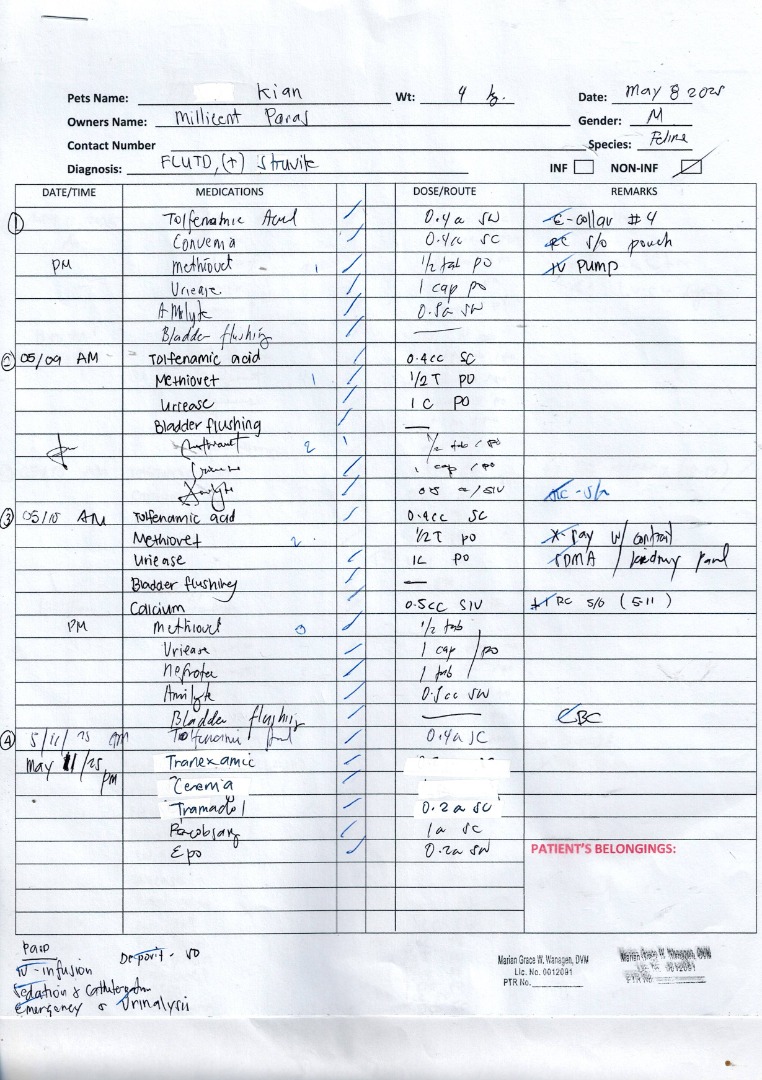 Pets Name: Kian Wt: 4 kg. Date: May 8 2025
Owners Name: Millicent Paras Gender: M
Contact Number Species: Feline
Diagnosis: FLUTD, (+) struvite INF NON-INF
DATE/TIME MEDICATIONS DOSE/ROUTE REMARKS
1 Tolfenamic Acid 0.4cc E-collar #4
Convenia 0.4cc SC RC S/O pouch
PM Methiovet 1 1/2 tab PO IV PUMP
Uriease 1 cap PO
Amilyte
Bladder flushing —
2 05/09 AM Tolfenamic acid 0.4cc SC
Methiovet 1 1/2 T PO
Uriease 1 C PO
Bladder flushing —
Methiovet 2 1/2 tab / PO
1 cap / PO
Amilyte 0.5
3 05/10 AM Tolfenamic acid 0.4cc SC
Methiovet 2 1/2T PO X-ray w/
Uriease 1C PO SDMA / kidney panel
Bladder flushing —
Calcium 0.5cc SIV #1 RC S/O (5-11)
PM Methiovet 3 1/2 tab
Uriease 1 cap / PO
Nefrotec 1 tab
Amilyte
Bladder flushing — CBC
4 5/11/25 am Tolfenamic 0.4cc SC
May 11/25 pm Tranexamic
Cerenia
Tramadol 0.2cc SC
1cc SC
Epo 0.2cc PATIENT'S BELONGINGS:
Paid Deposit -
IV-infusion
Sedation &
Emergency & Urinalysis
Marian Grace W. Wanagen, DVM
Lic. No. 0012091
PTR No.
Marian Grace W. Wanagen, DVM
Lic. No. 0012091
PTR No.